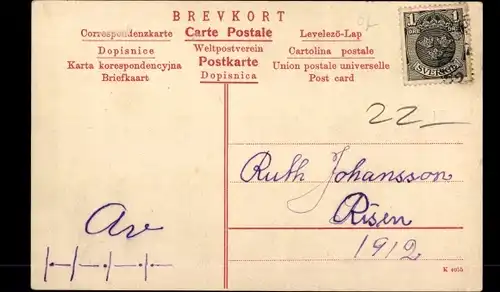 BREVKORT
Correspondenzkarte Carte Postale Levelező-Lap
Dopisnice Weltpostverein Cartolina postale
Karta korespondencyjna Postkarte Union postale universelle
Briefkaart Dopisnica Post card
1 ÖRE 1
SVERIGE
22–
Ruth Johansson
Risen
1912
K 4055